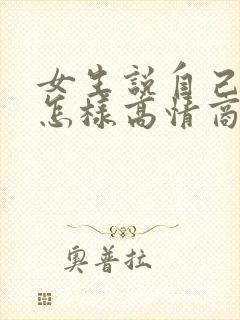 女生説自己
怎樣高情商
奧普拉